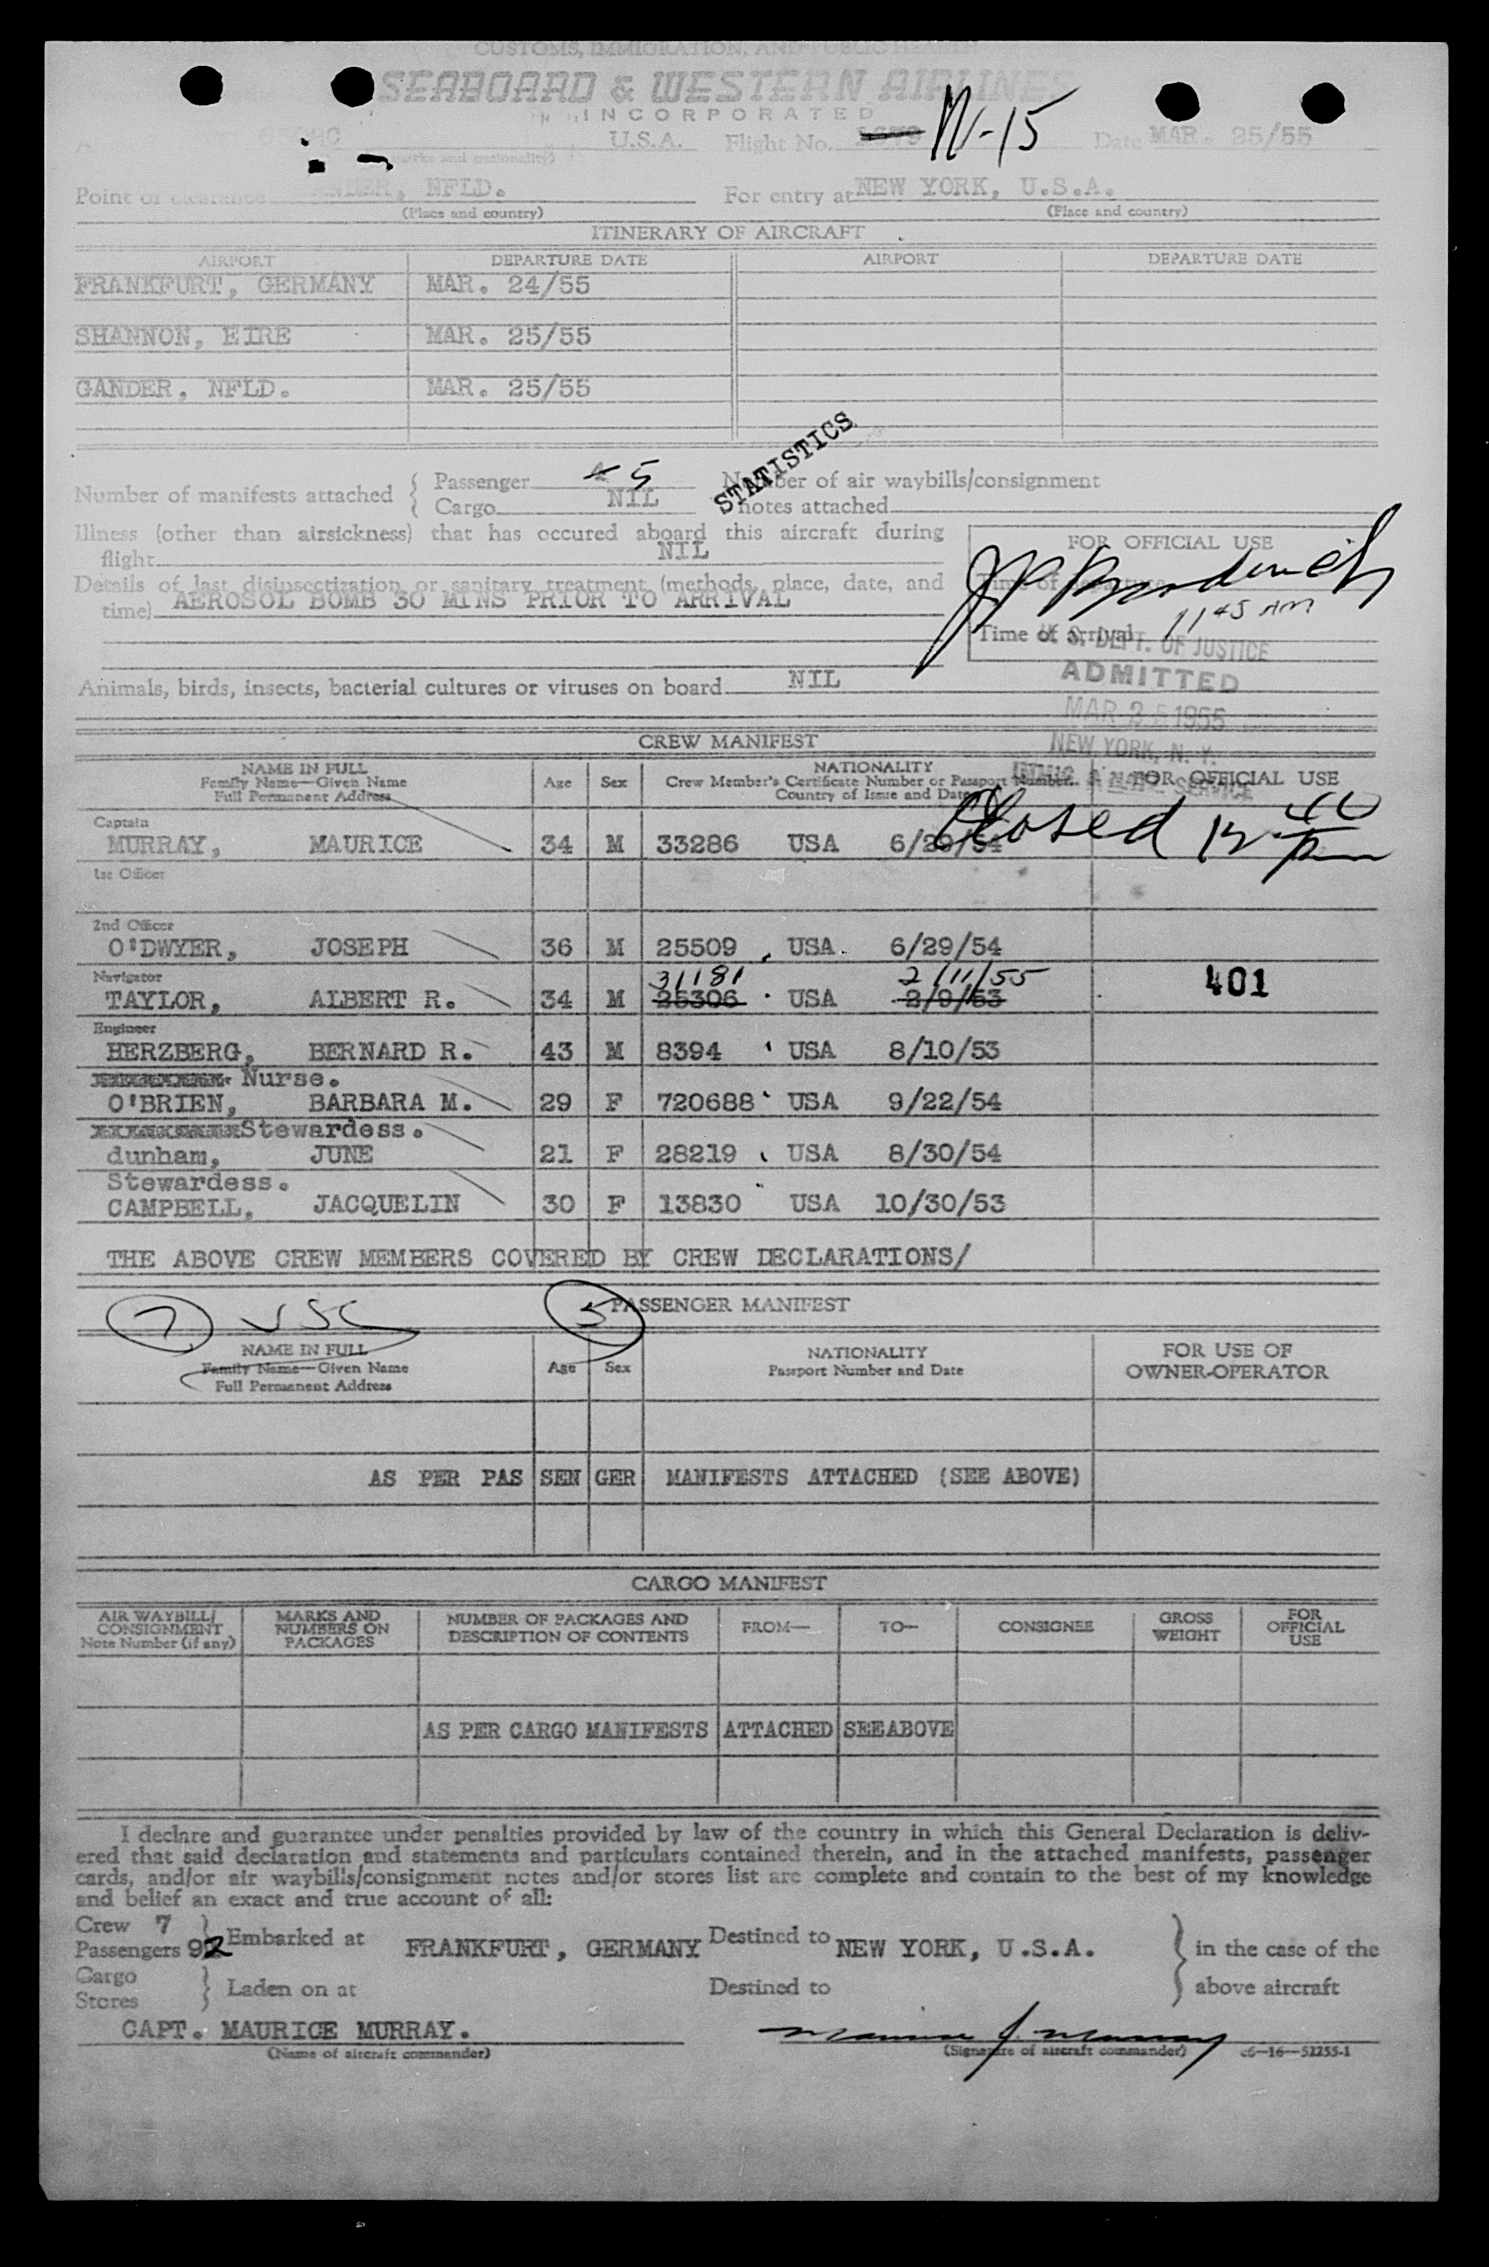 CUSTOMS, IMMIGRATION, AND PUBLIC HEALTH
SEABOARD & WESTERN AIRLINES
INCORPORATED
U.S.A. Flight No. W-15 Date MAR. 25/55
Point of clearance NDER, NFLD. For entry at NEW YORK, U.S.A.
(Place and country) (Place and country)
ITINERARY OF AIRCRAFT
AIRPORT DEPARTURE DATE AIRPORT DEPARTURE DATE
FRANKFURT, GERMANY MAR. 24/55
SHANNON, EIRE MAR. 25/55
GANDER, NFLD. MAR. 25/55
STATISTICS
Number of manifests attached { Passenger 5 Number of air waybills/consignment
Cargo NIL notes attached
Illness (other than airsickness) that has occured aboard this aircraft during
flight NIL
FOR OFFICIAL USE
Details of last disinsectization or sanitary treatment (methods, place, date, and
time) AEROSOL BOMB 30 MINS PRIOR TO ARRIVAL
Time of departure
11 45 AM
Time of arrival
U. S. DEPT. OF JUSTICE
ADMITTED
MAR 25 1955
NEW YORK, N. Y.
IMMIG. & NAT. SERVICE
Animals, birds, insects, bacterial cultures or viruses on board NIL
CREW MANIFEST
NAME IN FULL
Family Name—Given Name
Full Permanent Address
Age Sex
NATIONALITY
Crew Member's Certificate Number or Passport Number
Country of Issue and Date
FOR OFFICIAL USE
Closed 12 40 Pm
Captain
MURRAY, MAURICE 34 M 33286 USA 6/29/54
1st Officer
2nd Officer
O'DWYER, JOSEPH 36 M 25509 USA 6/29/54
Navigator 31181 2/11/55
TAYLOR, ALBERT R. 34 M 25306 USA 2/9/53 401
Engineer
HERZBERG, BERNARD R. 43 M 8394 USA 8/10/53
Nurse.
O'BRIEN, BARBARA M. 29 F 720688 USA 9/22/54
Stewardess.
dunham, JUNE 21 F 28219 USA 8/30/54
Stewardess.
CAMPBELL, JACQUELIN 30 F 13830 USA 10/30/53
THE ABOVE CREW MEMBERS COVERED BY CREW DECLARATIONS/
7 USC 5 PASSENGER MANIFEST
NAME IN FULL
Family Name—Given Name
Full Permanent Address
Age Sex
NATIONALITY
Passport Number and Date
FOR USE OF
OWNER-OPERATOR
AS PER PAS SEN GER MANIFESTS ATTACHED (SEE ABOVE)
CARGO MANIFEST
AIR WAYBILL/
CONSIGNMENT
Note Number (if any)
MARKS AND
NUMBERS ON
PACKAGES
NUMBER OF PACKAGES AND
DESCRIPTION OF CONTENTS
FROM— TO— CONSIGNEE
GROSS
WEIGHT
FOR
OFFICIAL
USE
AS PER CARGO MANIFESTS ATTACHED SEE ABOVE
I declare and guarantee under penalties provided by law of the country in which this General Declaration is deliv-
ered that said declaration and statements and particulars contained therein, and in the attached manifests, passenger
cards, and/or air waybills/consignment notes and/or stores list are complete and contain to the best of my knowledge
and belief an exact and true account of all:
Crew 7
Passengers 92 } Embarked at FRANKFURT, GERMANY Destined to NEW YORK, U.S.A. } in the case of the
Cargo
Stores } Laden on at Destined to above aircraft
CAPT. MAURICE MURRAY. Maurice J. Murray
(Name of aircraft commander) (Signature of aircraft commander) c6—16—52255-1